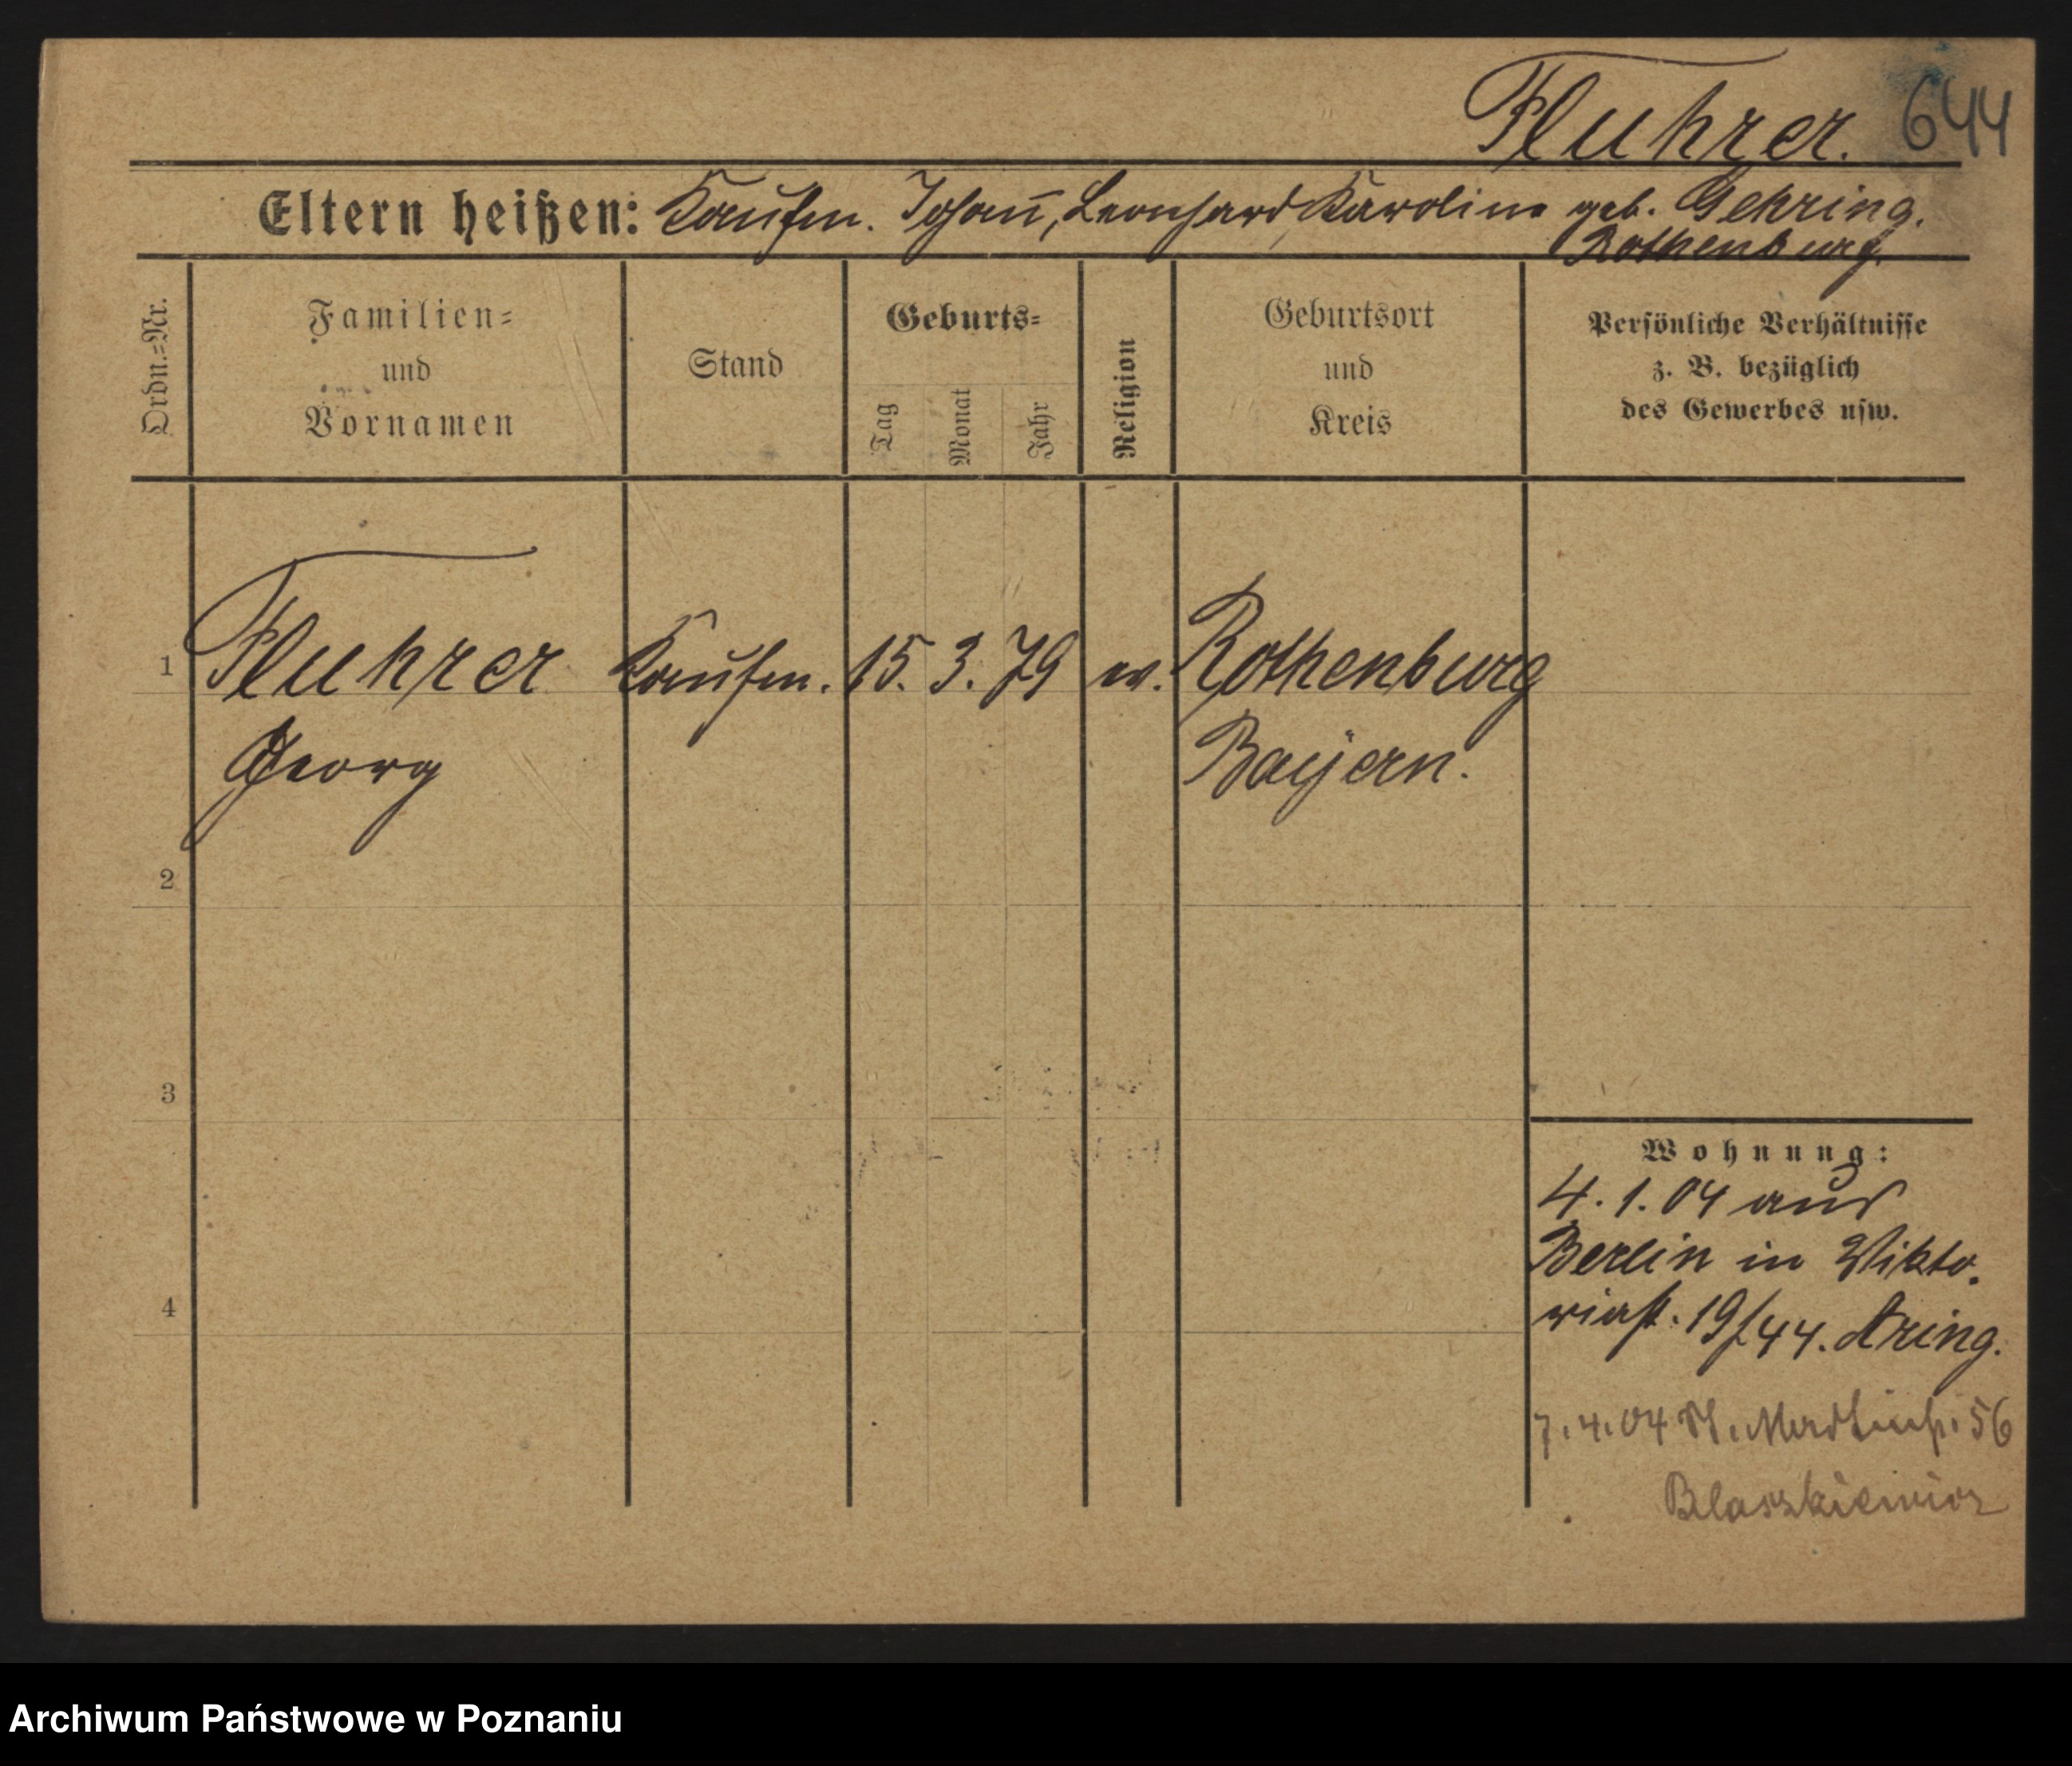 Fluhrer. 644
Eltern heißen: Kaufm. Johan̅, Leonhard Karoline geb. Gehring.
Rothenburg.
Ordn.=Nr.
Familien=
und
Vornamen
Stand
Geburts=
Tag
Monat
Jahr
Religion
Geburtsort
und
Kreis
Persönliche Verhältnisse
z. B. bezüglich
des Gewerbes usw.
1 Fluhrer Kaufm. 15. 3. 79 ev. Rothenburg
Georg Bayern.
2
3
4
Wohnung:
4. 1. 04 aus
Berlin in Vikto.
riastr. 19/44. Aring.
7. 4. 04 St. Martinstr. 56
Blaszkiewicz
Archiwum Państwowe w Poznaniu